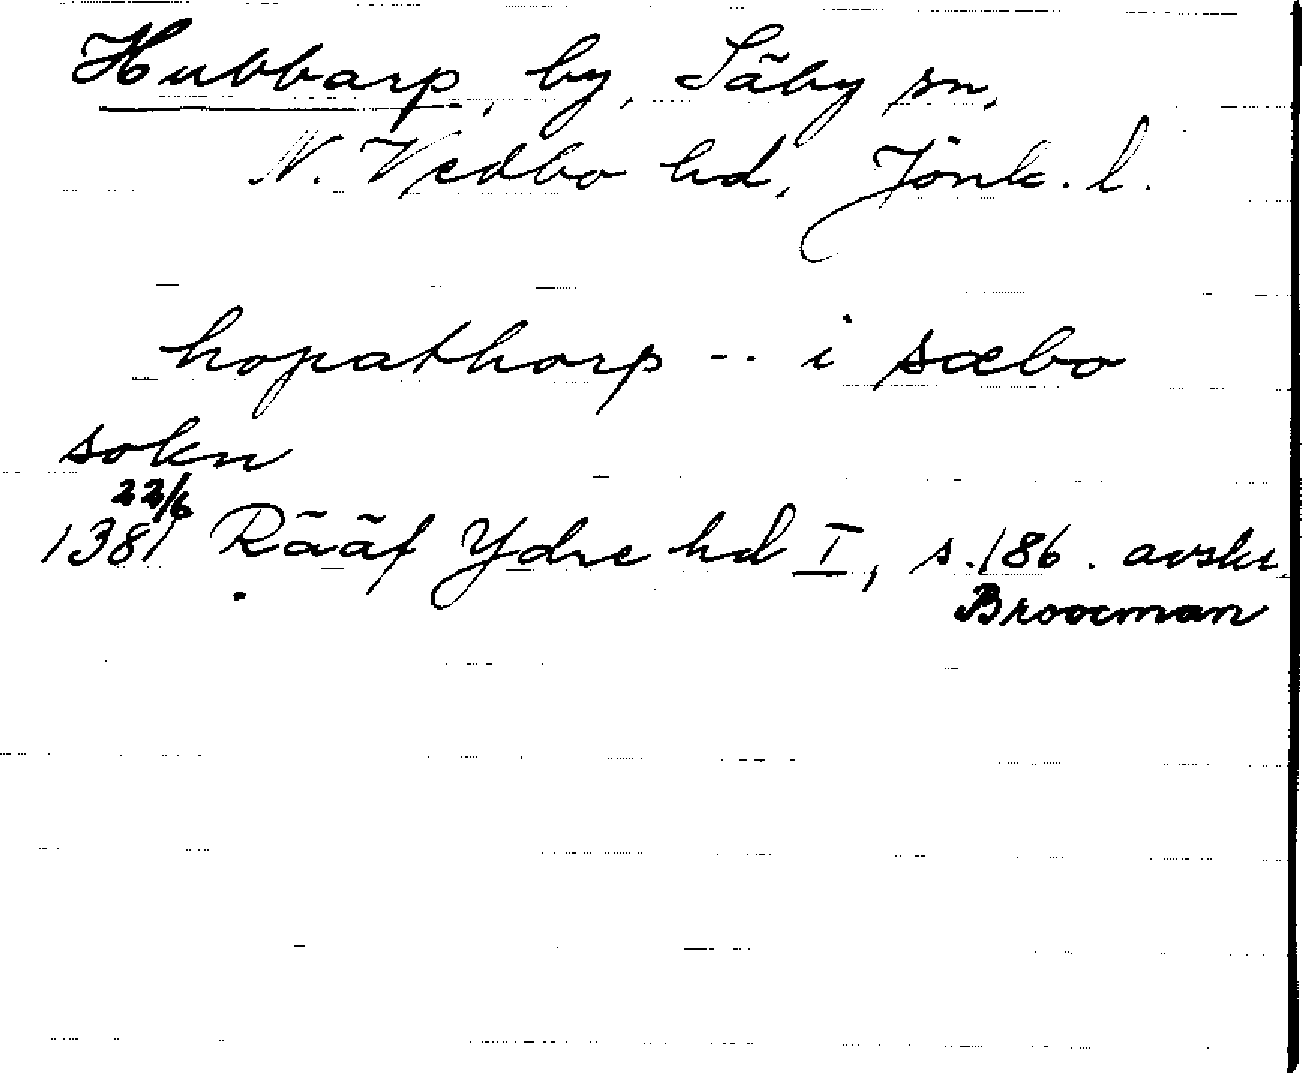 Hubbarp, by, Säby sn,
N. Vedbo hd, Jönk. l.
hopathorp -- i sæbo
sokn
22/6
1381 Rääf Ydre hd I, s. 186. avskr.
Broocman